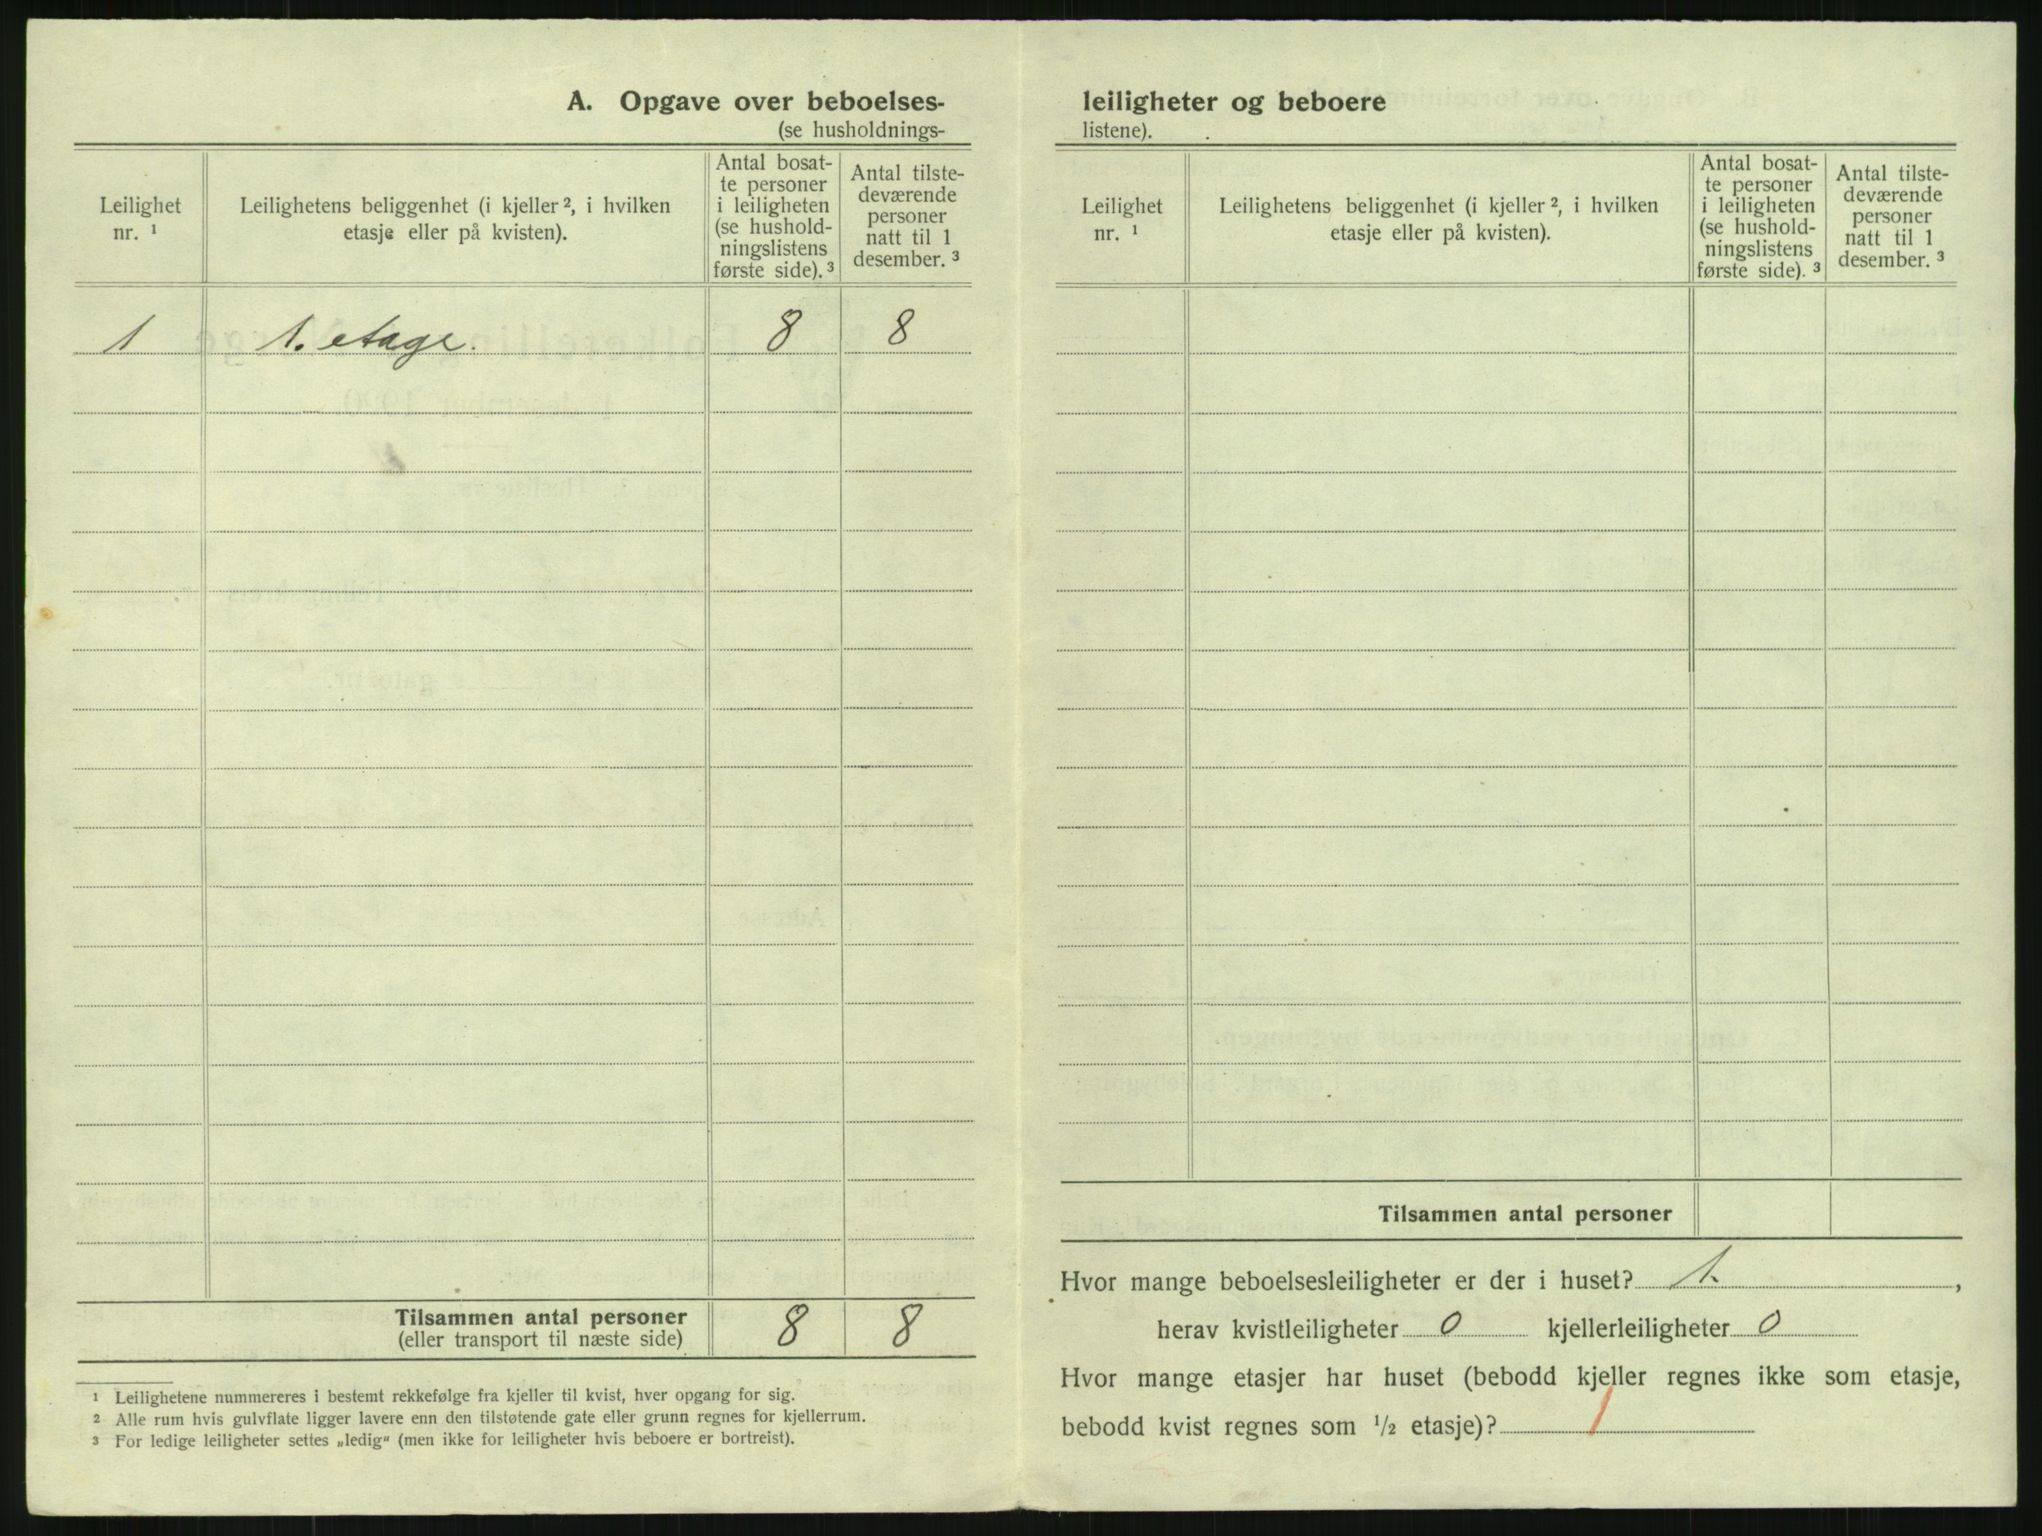 A. Opgave over beboelses-
(se husholdnings-
Leilighet
nr. ¹
Leilighetens beliggenhet (i kjeller ², i hvilken
etasje eller på kvisten).
Antal bosat-
te personer
i leiligheten
(se hushold-
ningslistens
første side). ³
Antal tilste-
deværende
personer
natt til 1
desember. ³
1 1. etage. 8 8
Tilsammen antal personer
(eller transport til næste side)
8 8
¹ Leilighetene nummereres i bestemt rekkefølge fra kjeller til kvist, hver opgang for sig.
² Alle rum hvis gulvflate ligger lavere enn den tilstøtende gate eller grunn regnes for kjellerrum.
³ For ledige leiligheter settes „ledig“ (men ikke for leiligheter hvis beboere er bortreist).
leiligheter og beboere
listene).
Leilighet
nr. ¹
Leilighetens beliggenhet (i kjeller ², i hvilken
etasje eller på kvisten).
Antal bosat-
te personer
i leiligheten
(se hushold-
ningslistens
første side). ³
Antal tilste-
deværende
personer
natt til 1
desember. ³
Tilsammen antal personer
Hvor mange beboelsesleiligheter er der i huset? 1. ,
herav kvistleiligheter 0 kjellerleiligheter 0
Hvor mange etasjer har huset (bebodd kjeller regnes ikke som etasje,
bebodd kvist regnes som ½ etasje)? 1